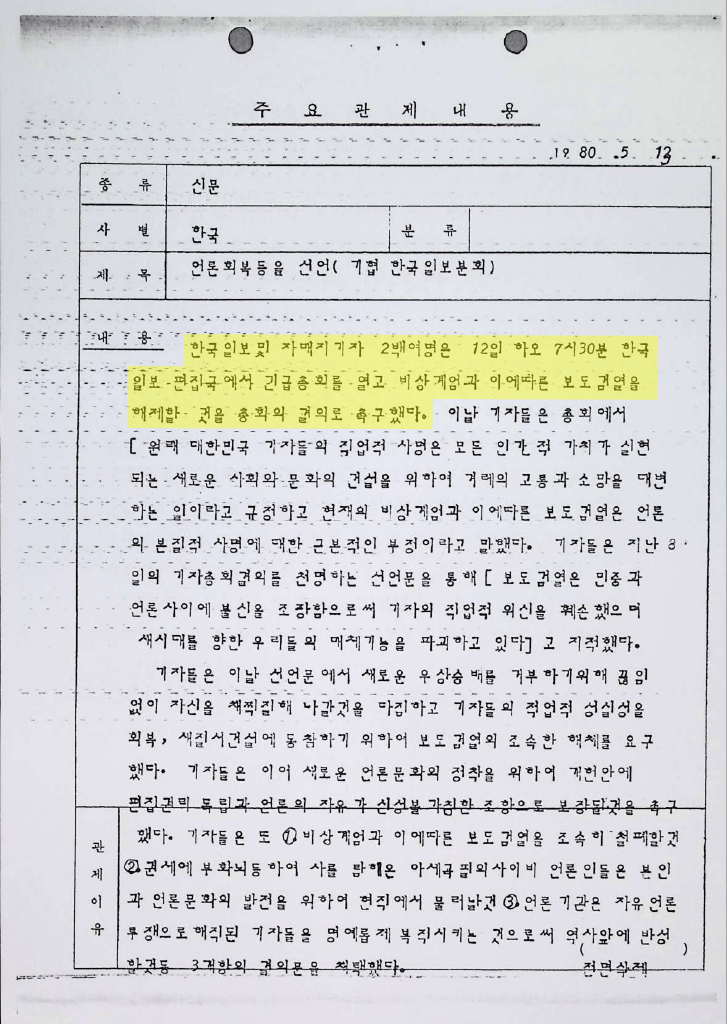 주요관제내용
1980. 5. 13.
종 류 신문
사 별 한국 분 류
제 목 언론회복등을 선언( 기협 한국일보분회)
내 용 한국일보및 자매지기자 2백여명은 12일 하오 7시30분 한국
일보 편집국에서 긴급총회를 열고 비상계엄과 이에따른 보도검열을
해제할 것을 총회의 결의로 촉구했다. 이날 기자들은 총회에서
[ 원래 대한민국 기자들의 직업적 사명은 모든 인간적 가치가 실현
되는 새로운 사회와 문화의 건설을 위하여 겨레의 고통과 소망을 대변
하는 일이라고 규정하고 현재의 비상계엄과 이에따른 보도검열은 언론
의 본질적 사명에 대한 근본적인 부정이라고 말했다. 기자들은 지난 8
일의 기자총회결의를 천명하는 선언문을 통해 [ 보도검열은 민중과
언론사이에 불신을 조장함으로써 기자의 직업적 위신을 훼손했으며
새시대를 향한 우리들의 매체기능을 파괴하고 있다] 고 지적했다.
기자들은 이날 선언문에서 새로운 우상숭배를 거부하기위해 끊임
없이 자신을 채찍질해 나갈것을 다짐하고 기자들의 직업적 성실성을
회복, 새질서건설에 동참하기 위하여 보도검열의 조속한 해체를 요구
했다. 기자들은 이어 새로운 언론문화의 정착을 위하여 개헌안에
편집권의 독립과 언론의 자유가 신성불가침한 조항으로 보장될것을 촉구
관제이유
했다. 기자들은 또 ①비상계엄과 이에따른 보도검열을 조속히 철폐할것
②권세에 부화뇌동하여 사를 탐해온 아세곡필의사이비 언론인들은 본인
과 언론문화의 발전을 위하여 현직에서 물러날것 ③언론기관은 자유언론
투쟁으로해직된 기자들을 명예롭게 복직시키는 것으로써 역사앞에 반성
할것등 3개항의 결의문을 채택했다. ( 전면삭제 )